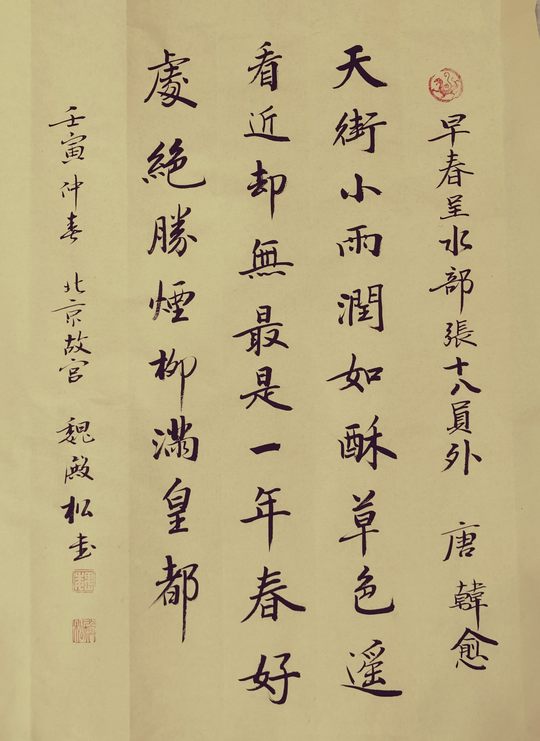 早春呈水部張十八員外 唐 韓愈
天街小雨潤如酥草色遥
看近却無最是一年春好
處絕勝煙柳滿皇都
壬寅仲春 北京故宫 魏殿松书